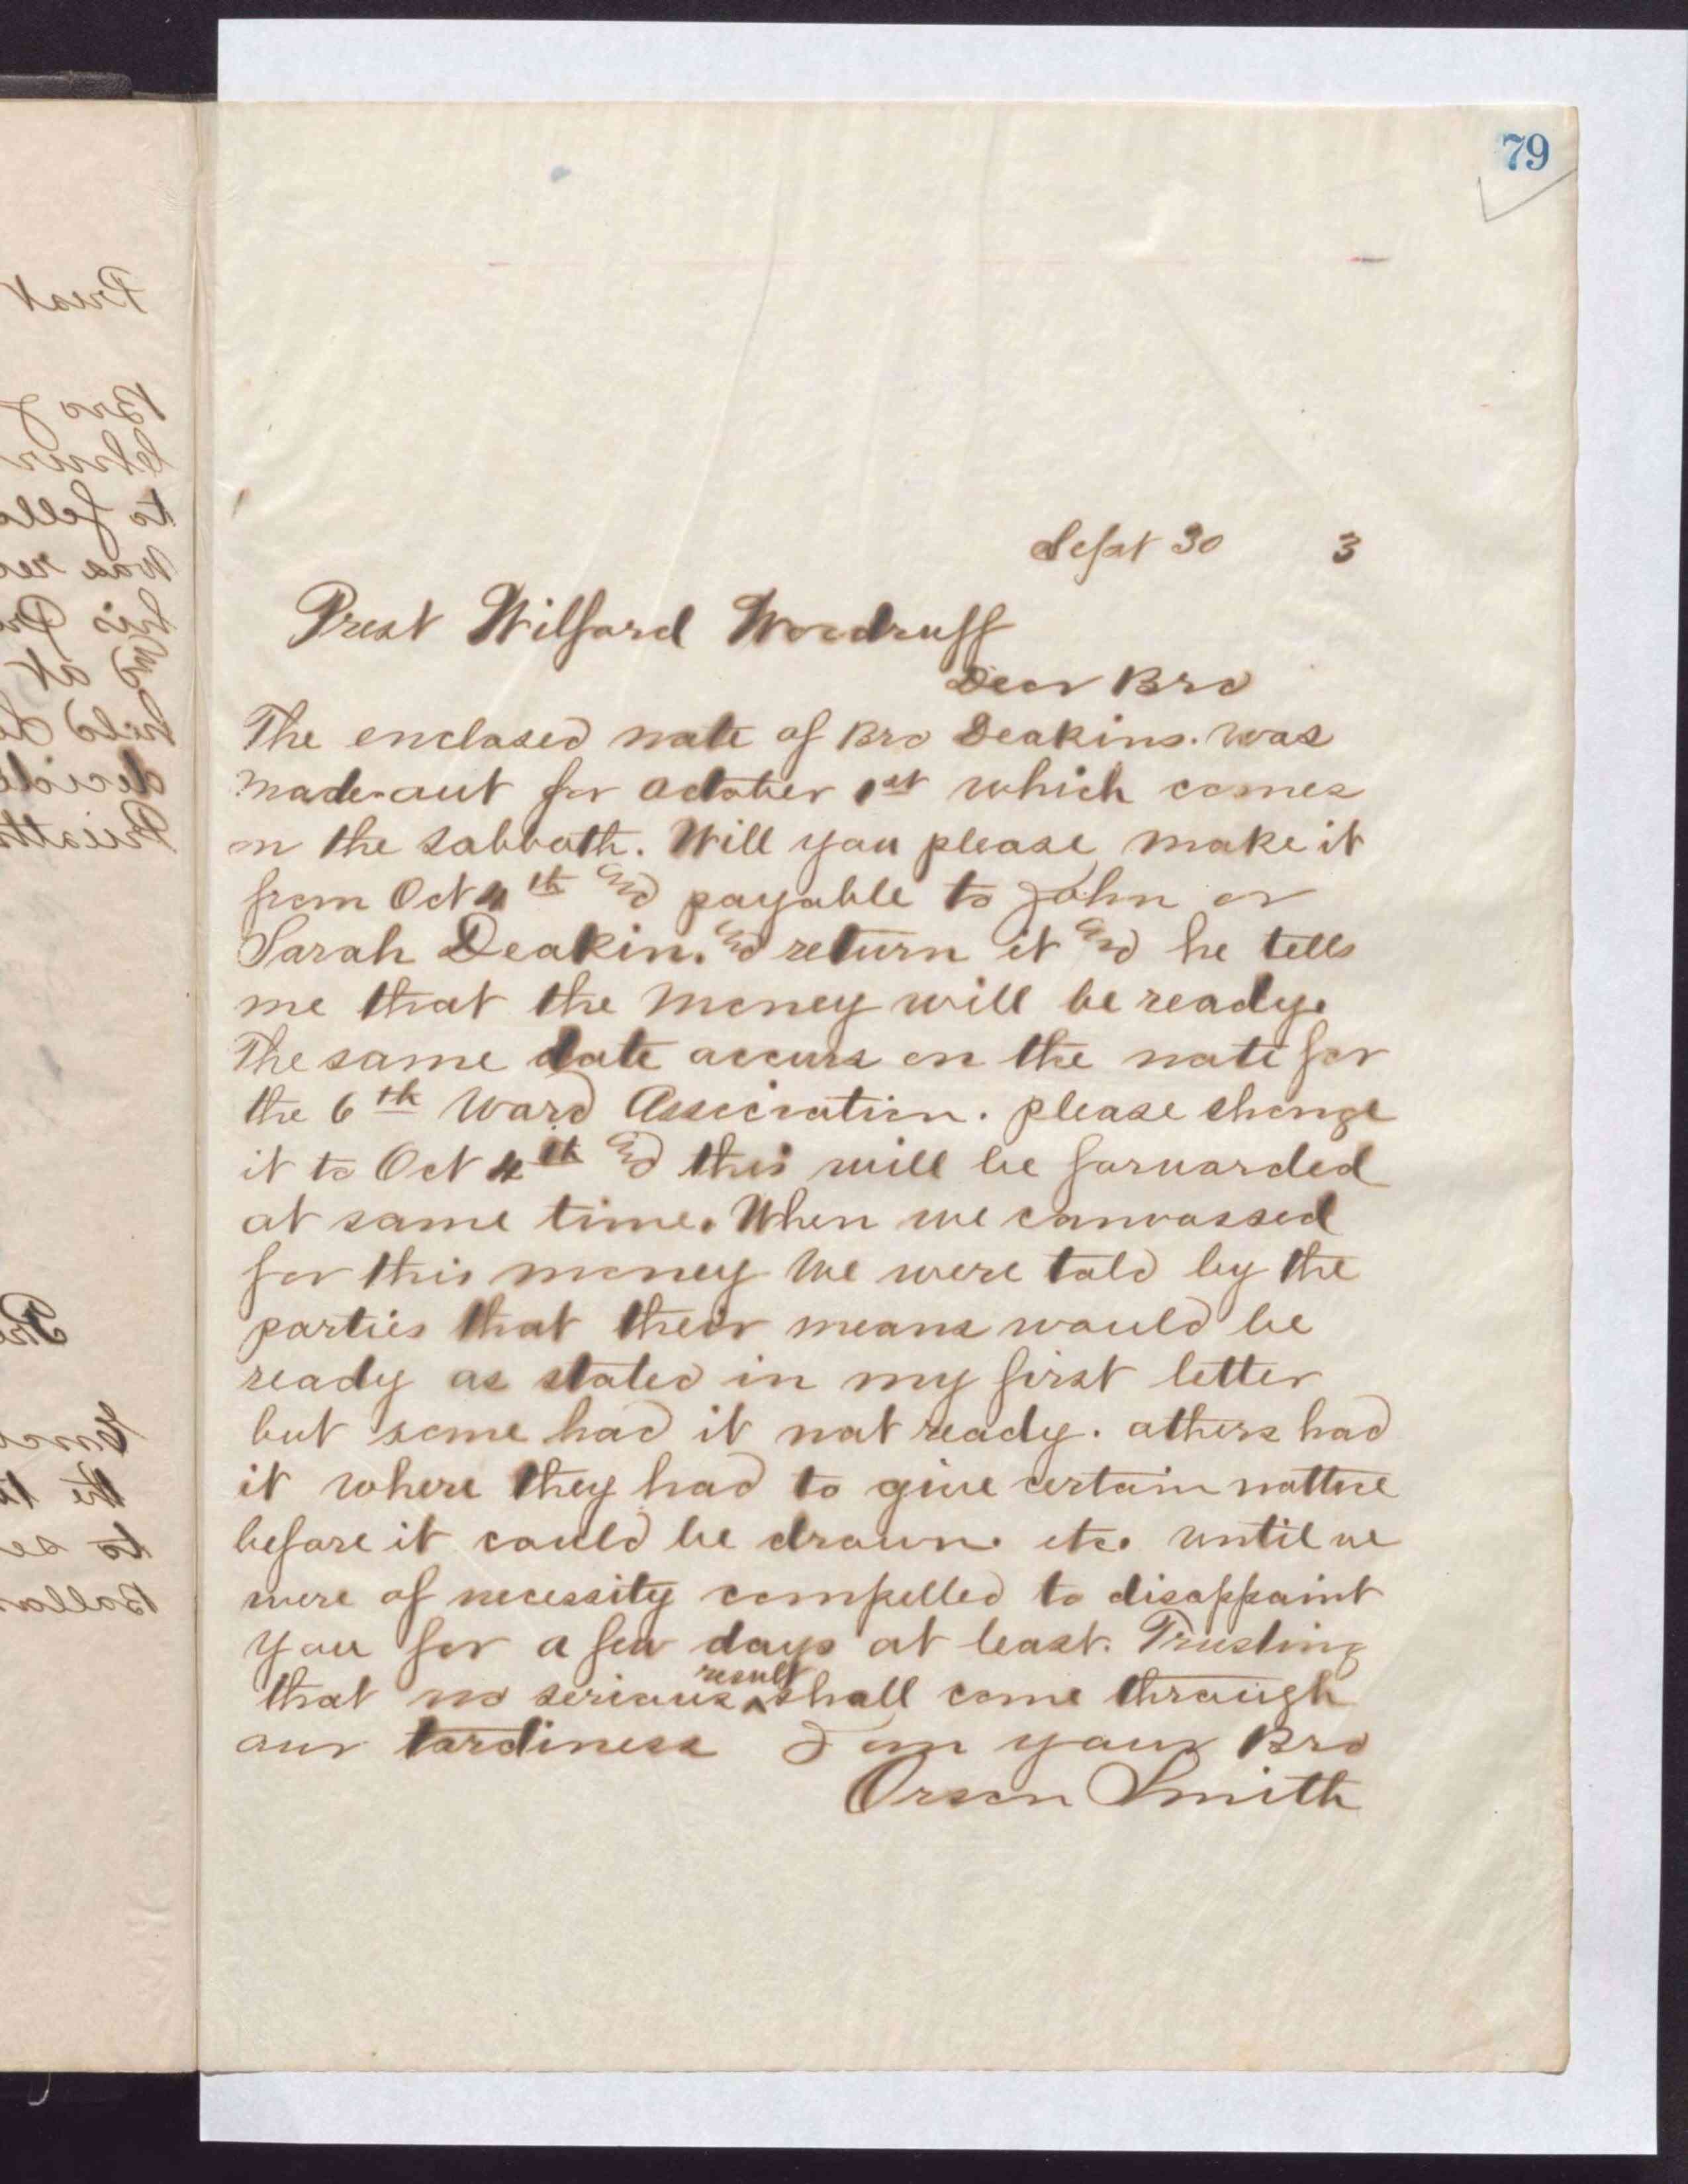 79
Sept 30 3
Prest Wilford Woodruff
Dear Bro
The enclosed note of Bro Deakins. was
made out for October 1st which comes
on the Sabbath. Will you please make it
from Oct 4th and payable to John or
Sarah Deakin. and return it and he tells
me that the money will be ready.
The same date occurs on the note for
the 6th Ward Association. please change
it to Oct 4th and this will be forwarded
at same time. When we canvassed
for this money we were told by the
parties that their means would be
ready as stated in my first letter
but some had it not ready. others had
it where they had to give certain nottice
before it could be drawn. etc. until we
were of necessity compelled to disappoint
you for a few days at least. Trusting
that no serious result shall come through
our tardiness I am your Bro
Orson Smith